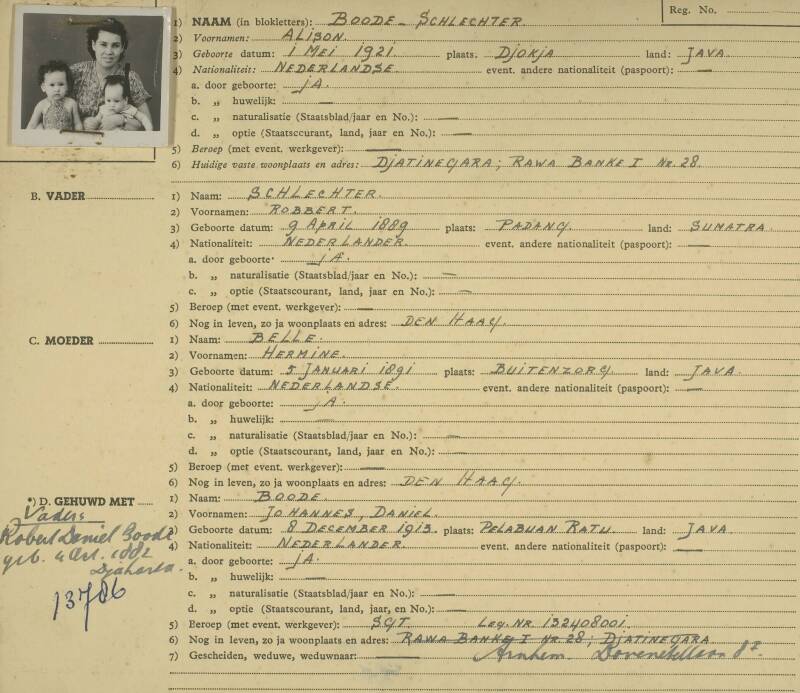 Reg. No.
1) NAAM (in blokletters): BOODE - SCHLECHTER.
2) Voornamen: ALISON.
3) Geboorte datum: 1 MEI 1921. plaats. DJOKJA land: JAVA
4) Nationaliteit: NEDERLANDSE. event. andere nationaliteit (paspoort): —
a. door geboorte: JA.
b. „ huwelijk: —
c. „ naturalisatie (Staatsblad/jaar en No.): —
d. „ optie (Staatsccurant, land, jaar en No.): —
5) Beroep (met event. werkgever): —
6) Huidige vaste woonplaats en adres: DJATINEGARA; RAWA BANKE I Nr. 28.
B. VADER
1) Naam: SCHLECHTER.
2) Voornamen: ROBBERT.
3) Geboorte datum: 9 APRIL 1889 plaats: PADANG land: SUMATRA
4) Nationaliteit: NEDERLANDER. event. andere nationaliteit (paspoort): —
a. door geboorte: JA.
b. „ naturalisatie (Staatsblad/jaar en No.): —
c. „ optie (Staatscourant, land, jaar en No.): —
5) Beroep (met event. werkgever): —
6) Nog in leven, zo ja woonplaats en adres: DEN HAAG.
C. MOEDER
1) Naam: BELLE.
2) Voornamen: HERMINE.
3) Geboorte datum: 5 JANUARI 1891 plaats: BUITENZORG land: JAVA.
4) Nationaliteit: NEDERLANDSE. event. andere nationaliteit (paspoort): —
a. door geboorte: JA.
b. „ huwelijk: —
c. „ naturalisatie (Staatsblad/jaar en No.): —
d. „ optie (Staatscourant, land, jaar en No.): —
5) Beroep (met event. werkgever): —
6) Nog in leven, zo ja woonplaats en adres: DEN HAAG.
*) D. GEHUWD MET
1) Naam: BOODE.
2) Voornamen: JOHANNES, DANIEL.
3) Geboorte datum: 8 DECEMBER 1913. plaats: PELABUAN RATU. land: JAVA
4) Nationaliteit: NEDERLANDER. event. andere nationaliteit (paspoort): —
a. door geboorte: JA.
b. „ huwelijk: —
c. „ naturalisatie (Staatsblad/jaar en No.): —
d. „ optie (Staatscourant, land, jaar, en No.): —
5) Beroep (met event. werkgever): SGT. Leg. Nr. 132408001.
6) Nog in leven, zo ja woonplaats en adres: RAWA BANKE I Nr 28; DJATINEGARA
7) Gescheiden, weduwe, weduwnaar: — Arnhem.
Vader:
Robert Daniel Boode
geb. 4 Oct. 1882
Djakarta.
13786